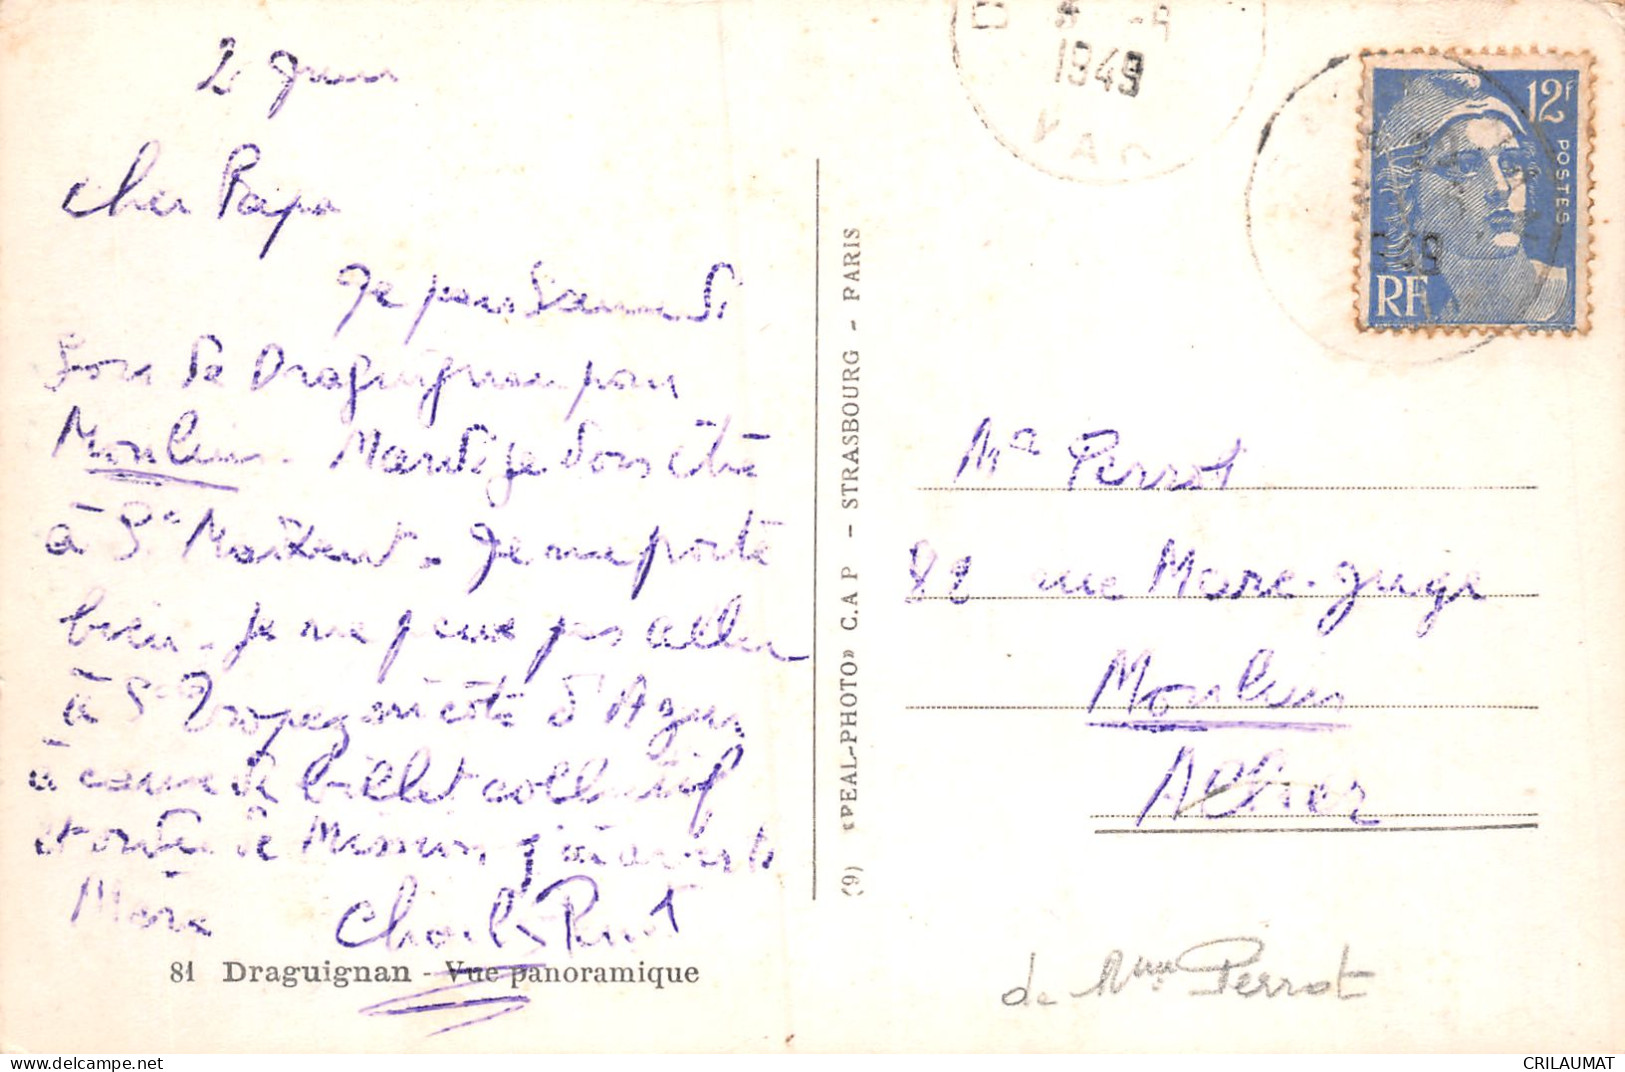 2 Juin
cher Papa
Je pars Samedi
soir de Draguignan pour
Moulins. Mardi je dois être
à St Maixent. Je me porte
bien. Je ne peux pas aller
à St Tropez ni côté d'Agay
à cause de billet collectif
et ordre de Mission, j'ai averti
Mère Charles Perrot
81 Draguignan - Vue panoramique
«PEAL-PHOTO» C.A P - STRASBOURG - PARIS
(9)
1949
VAR
12F
POSTES
RF
Mr Perrot
82 rue Marc-Juge
Moulins
Allier
de Mme Perrot
www.delcampe.net
CRILAUMAT